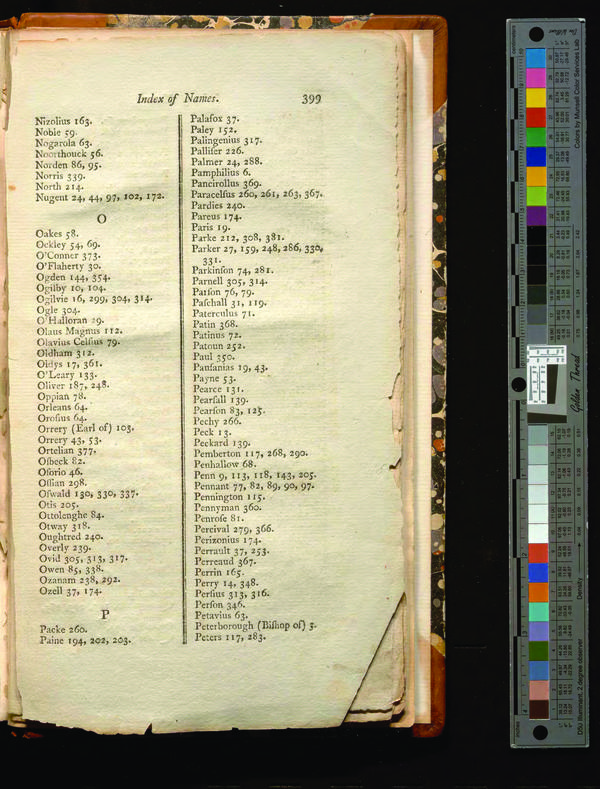 Index of Names.
399
Nizolius 163.
Noble 59.
Nogarola 63.
Noorthouck 56.
Norden 86, 95.
Norris 339.
North 214.
Nugent 24, 44, 97, 102, 172.
O
Oakes 58.
Ockley 54, 69.
O'Conner 373.
O'Flaherty 30.
Ogden 144, 354.
Ogilby 10, 104.
Ogilvie 16, 299, 304, 314.
Ogle 304.
O'Halloran 29.
Olaus Magnus 112.
Olavius Celſius 79.
Oldham 312.
Oldys 17, 361.
O'Leary 133.
Oliver 187, 248.
Oppian 78.
Orleans 64.
Oroſius 64.
Orrery (Earl of) 103.
Orrery 43, 53.
Ortelian 377.
Oſbeck 82.
Oſorio 46.
Oſſian 298.
Oſwald 130, 330, 337.
Otis 205.
Ottolenghe 84.
Otway 318.
Oughtred 240.
Overly 239.
Ovid 305, 313, 317.
Owen 85, 338.
Ozanam 238, 292.
Ozell 37, 174.
P
Packe 260.
Paine 194, 202, 203.
Palafox 37.
Paley 152.
Palingenius 317.
Palliſer 226.
Palmer 24, 288.
Pamphilius 6.
Pancirollus 369.
Paracelſus 260, 261, 263, 367.
Pardies 240.
Pareus 174.
Paris 19.
Parke 212, 308, 381.
Parker 27, 159, 248, 286, 330,
331.
Parkinſon 74, 281.
Parnell 305, 314.
Parſon 76, 79.
Paſchall 31, 119.
Paterculus 71.
Patin 368.
Patinus 72.
Patoun 252.
Paul 350.
Pauſanias 19, 43.
Payne 53.
Pearce 131.
Pearſall 139.
Pearſon 83, 125.
Pechy 266.
Peck 13.
Peckard 139.
Pemberton 117, 268, 290.
Penhallow 68.
Penn 9, 113, 118, 143, 205.
Pennant 77, 82, 89, 90, 97.
Pennington 115.
Pennyman 360.
Penroſe 81.
Percival 279, 366.
Perizonius 174.
Perrault 37, 253.
Perreaud 367.
Perrin 165.
Perry 14, 348.
Perſius 313, 316.
Perſon 346.
Petavius 63.
Peterborough (Biſhop of) 3.
Peters 117, 283.
Colors by Munsell Color Services Lab
Golden Thread
Density
D50 Illuminant, 2 degree observer